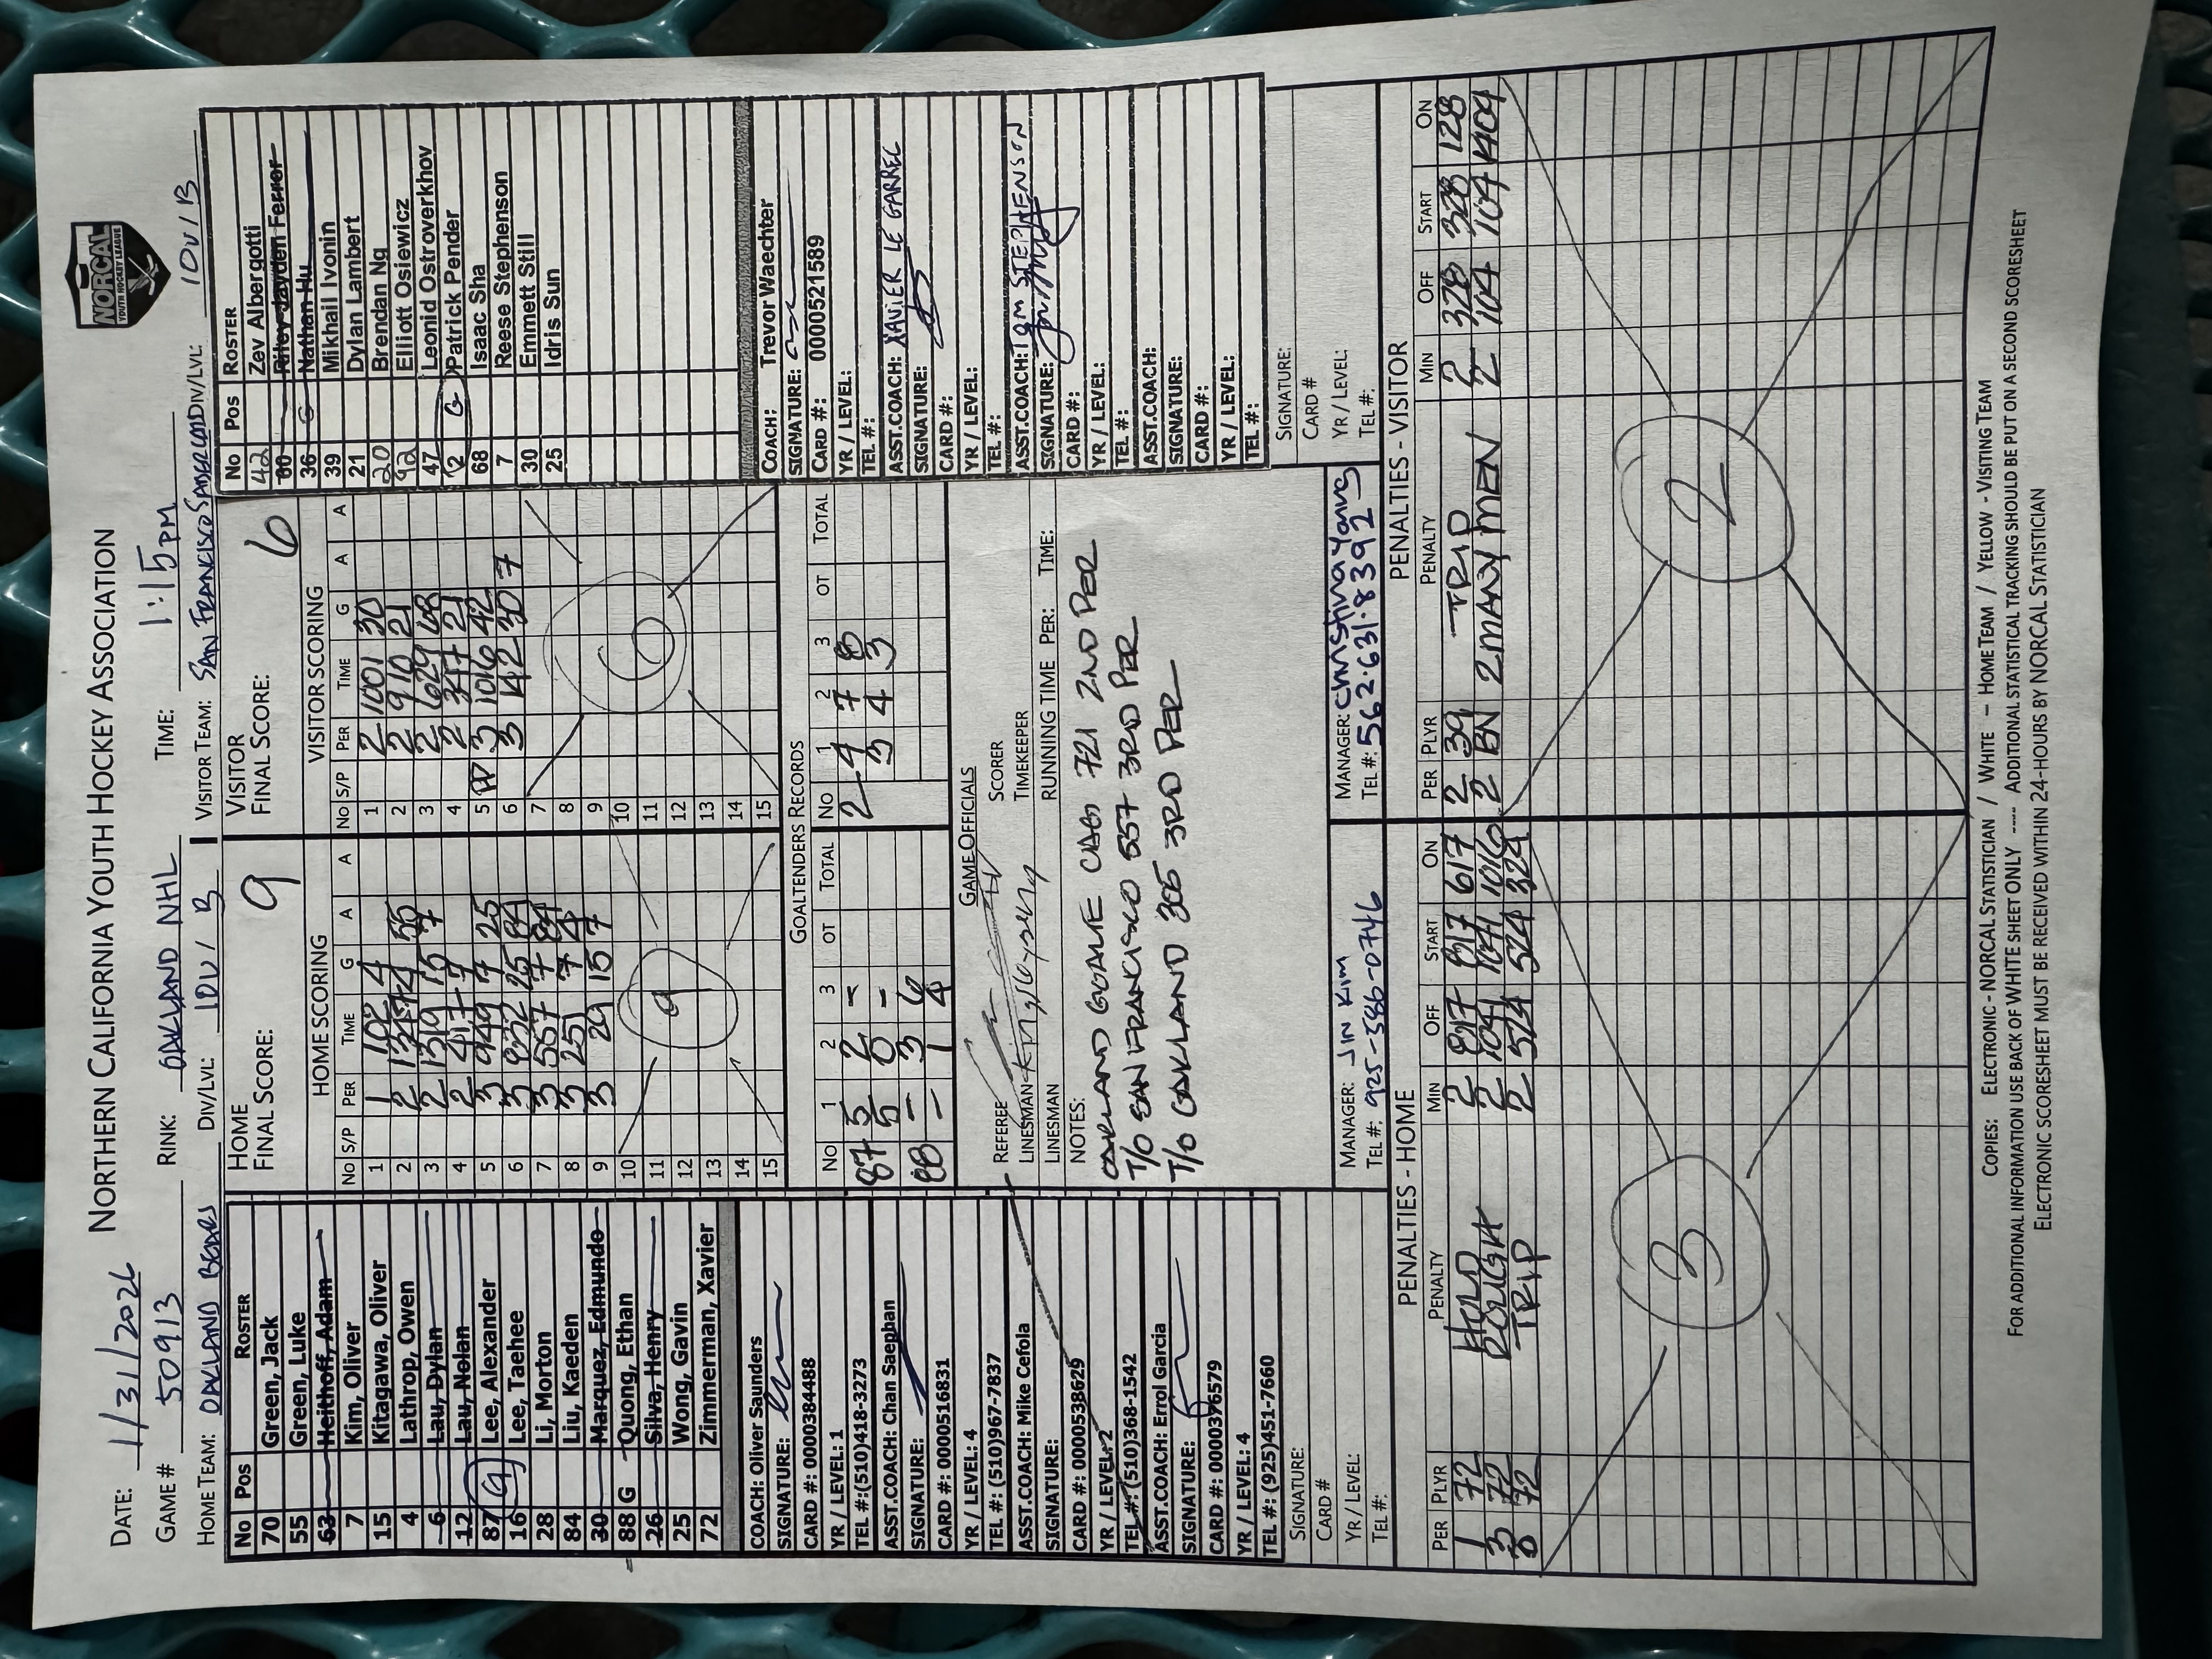 NORTHERN CALIFORNIA YOUTH HOCKEY ASSOCIATION
NORCAL
YOUTH HOCKEY LEAGUE
DATE: 1/31/2026
GAME # 50913 RINK: OAKLAND NHL TIME: 1:15PM
HOME TEAM: OAKLAND BEARS DIV/LVL: 10U / B VISITOR TEAM: SAN FRANCISCO SABERCATS DIV/LVL: 10U / B
No Pos ROSTER
70 Green, Jack
55 Green, Luke
63 Heithoff, Adam
7 Kim, Oliver
15 Kitagawa, Oliver
4 Lathrop, Owen
6 Lau, Dylan
12 Lau, Nolan
87 Lee, Alexander
16 G Lee, Taehee
28 Li, Morton
84 Liu, Kaeden
30 Marquez, Edmundo
88 G Quong, Ethan
26 Silva, Henry
25 Wong, Gavin
72 Zimmerman, Xavier
COACH: Oliver Saunders
SIGNATURE:
CARD #: 0000384488
YR / LEVEL: 1
TEL #:(510)418-3273
ASST.COACH: Chan Saephan
SIGNATURE:
CARD #: 0000516831
YR / LEVEL: 4
TEL #: (510)967-7837
ASST.COACH: Mike Cefola
SIGNATURE:
CARD #: 0000538629
YR / LEVEL: 2
TEL #: (510)368-1542
ASST.COACH: Errol Garcia
SIGNATURE:
CARD #: 0000376579
YR / LEVEL: 4
TEL #: (925)451-7660
SIGNATURE:
CARD #
YR / LEVEL:
TEL #:
HOME
FINAL SCORE: 9
HOME SCORING
No S/P PER TIME G A A
1 1 102 4
2 2 1317 4 55
3 2 1319 15 7
4 2 417 7
5 3 949 7 25
6 3 932 25 84
7 3 557 7 84
8 3 251 7 4
9 3 29 15 7
10
11
12
13
14
15
9
VISITOR
FINAL SCORE: 6
VISITOR SCORING
No S/P PER TIME G A A
1 2 1001 30
2 2 910 21
3 2 629 68
4 2 347 21
5 PP 3 1016 42
6 3 142 30 7
7
8
9
10
11
12
13
14
15
6
GOALTENDERS RECORDS
No 1 2 3 OT TOTAL No 1 2 3 OT TOTAL
87 5 2 - 2 4 7 8
5 0 - 3 4 3
88 - 3 6
- 1 4
GAME OFFICIALS
REFEREE SCORER
LINESMAN TIMEKEEPER
LINESMAN RUNNING TIME PER: TIME:
NOTES:
OAKLAND GOALIE CHG 721 2ND PER
T/O SAN FRANCISCO 557 3RD PER
T/O OAKLAND 305 3RD PER
MANAGER: JIN KIM
TEL #: 925-586-0746
MANAGER: Christina Yang
TEL #: 562.631.8392
No Pos ROSTER
42 Zev Albergotti
Riley Jayden Ferrer
36 G Nathan Hu
39 Mikhail Ivonin
21 Dylan Lambert
20 Brendan Ng
92 Elliott Osiewicz
47 Leonid Ostroverkhov
2 G Patrick Pender
68 Isaac Sha
7 Reese Stephenson
30 Emmett Still
25 Idris Sun
COACH: Trevor Waechter
SIGNATURE:
CARD #: 0000521589
YR / LEVEL:
TEL #:
ASST.COACH: XAVIER LE GARREC
SIGNATURE:
CARD #:
YR / LEVEL:
TEL #:
ASST.COACH: TOM STEPHENSON
SIGNATURE:
CARD #:
YR / LEVEL:
TEL #:
ASST.COACH:
SIGNATURE:
CARD #:
YR / LEVEL:
TEL #:
SIGNATURE:
CARD #
YR / LEVEL:
TEL #:
PENALTIES - HOME
PER PLYR PENALTY MIN OFF START ON
1 72 HOLD 2 817 817 617
3 72 ROUGH 2 1041 1041 1016
3 72 TRIP 2 524 524 324
3
PENALTIES - VISITOR
PER PLYR PENALTY MIN OFF START ON
2 39 TRIP 2 328 328 128
2 BN 2MANY MEN 2 104 104 404
2
COPIES: ELECTRONIC - NORCAL STATISTICIAN / WHITE - HOME TEAM / YELLOW - VISITING TEAM
FOR ADDITIONAL INFORMATION USE BACK OF WHITE SHEET ONLY ---- ADDITIONAL STATISTICAL TRACKING SHOULD BE PUT ON A SECOND SCORESHEET
ELECTRONIC SCORESHEET MUST BE RECEIVED WITHIN 24-HOURS BY NORCAL STATISTICIAN